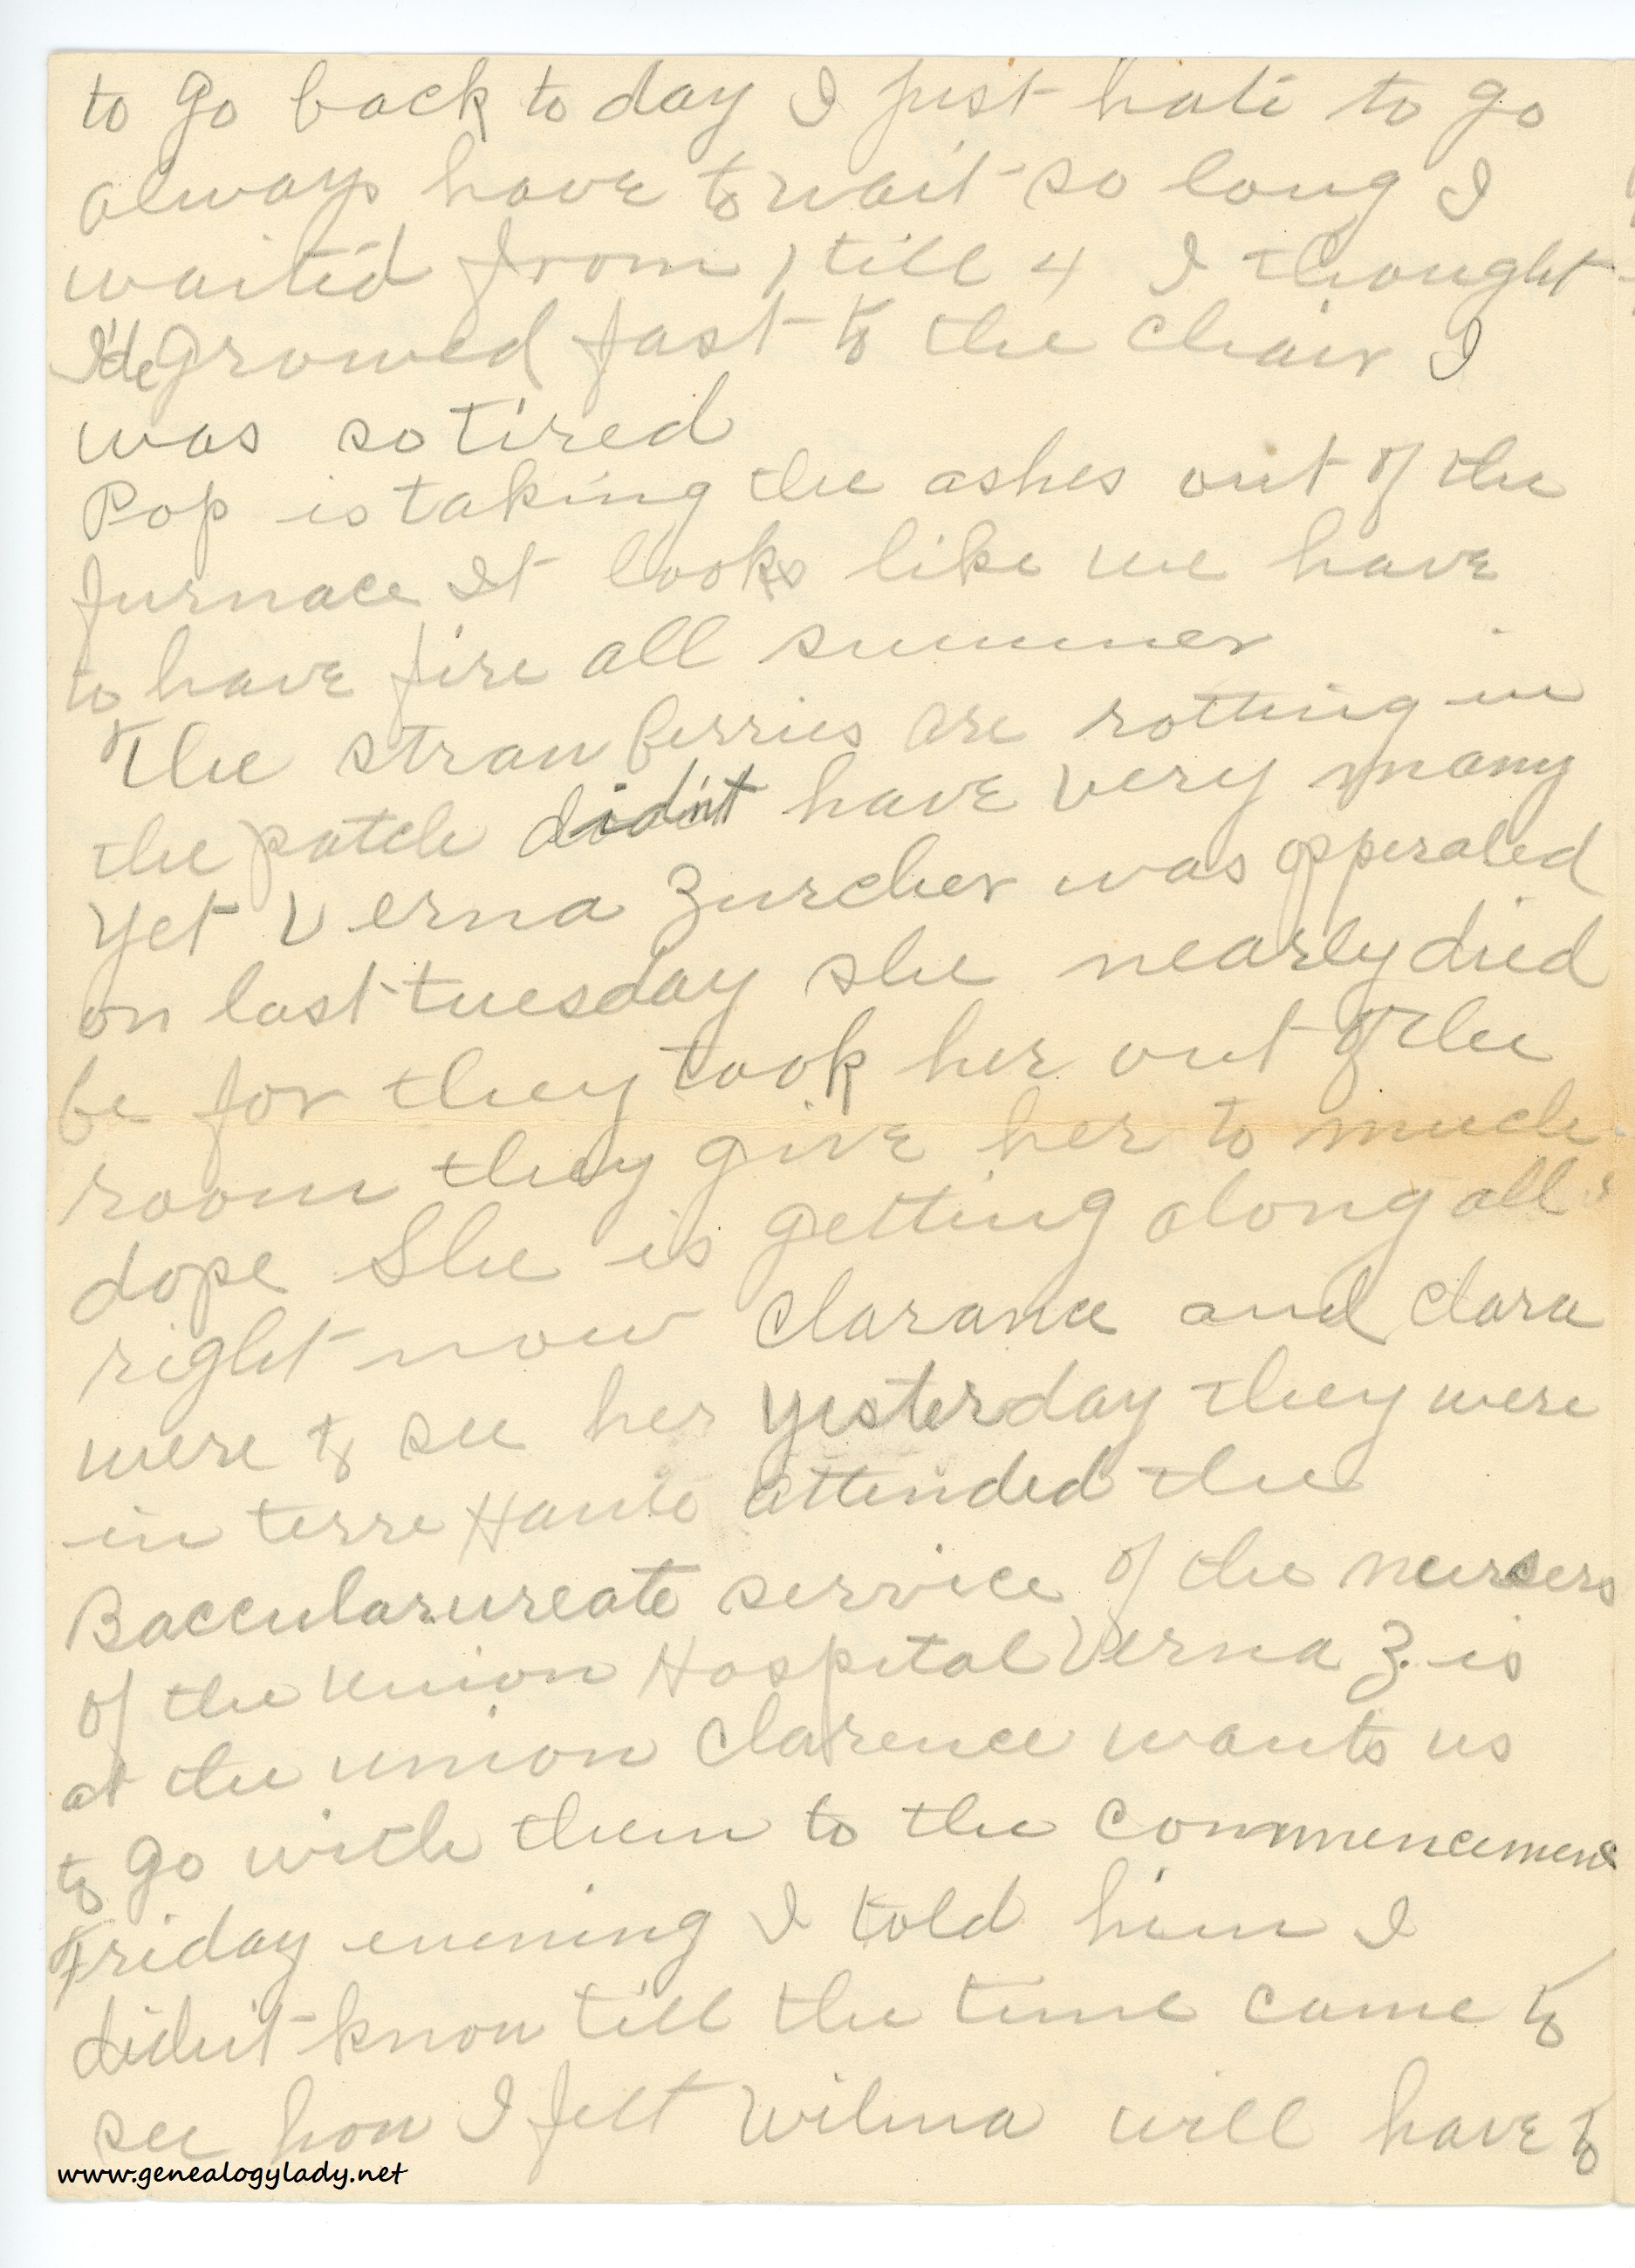 to go back to day I just hate to go
always have to wait so long I
waited from 1 till 4 I thought
I'de growed fast to the chair I
was so tired
Pop is taking the ashes out of the
furnace It looks like we have
to have fire all summer
The straw berries are rotting in
the patch didn't have very many
yet Verna Zurcher was opperated
on last tuesday she nearly died
be for they took her out of the
room they give her to much
dope She is getting along all
right now Clarance and Clara
were to see her yesterday they were
in terre Haute attended the
Baccularureate service of the nursers
of the Union Hospital Verna Z. is
at the union Clarence wants us
to go with them to the commencement
Friday evening I told him I
didn't know till the time came to
see how I felt Wilma will have to
www.genealogylady.net